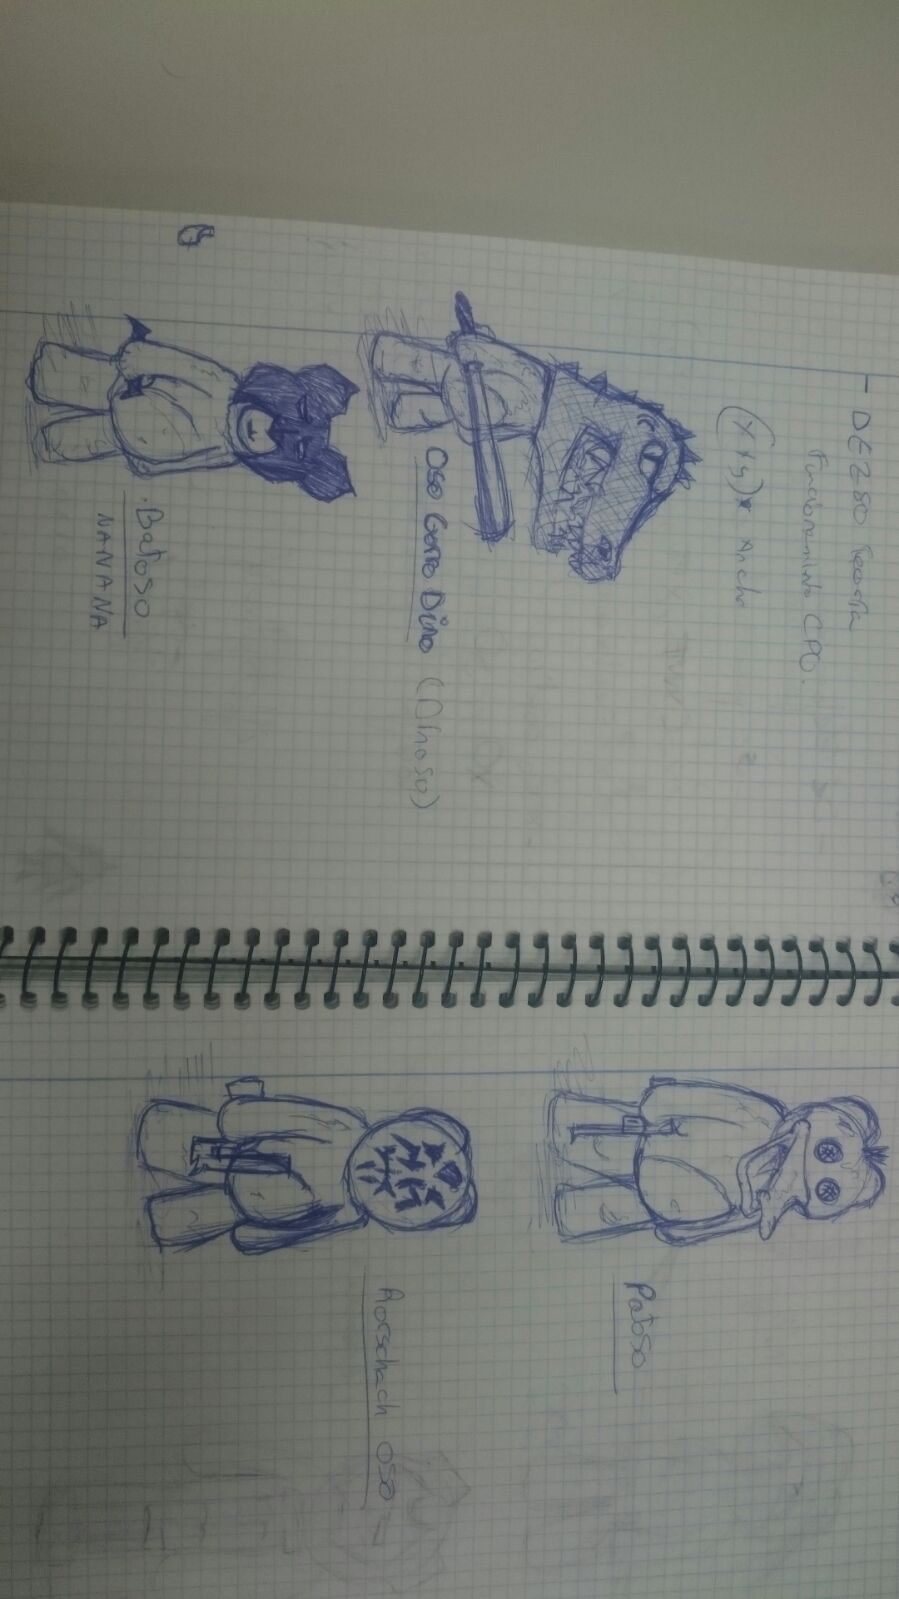 - DEZ80 
Funcionamiento CPU.
(x+y)* Ancho
Oso Gorro Dino (Dinoso)
.Batoso
NANANA
Patoso
Rorschach Oso